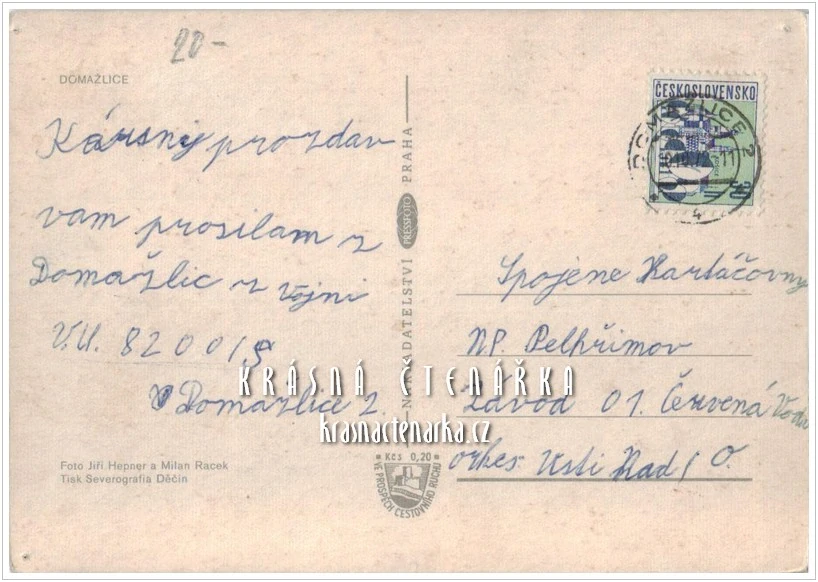 20-
DOMAŽLICE
Kársný prozdav
vam prosilam z
Domažlic z vojni
V.Ú. 8200/S
Domažlice 2.
Foto Jiří Hepner a Milan Racek
Tisk Severografia Děčín
NAKLADATELSTVÍ PRESSFOTO PRAHA
Kčs 0,20
VE PROSPĚCH CESTOVNÍHO RUCHU
ČESKOSLOVENSKO
30
DOMAŽLICE 2
Spojene Kartáčovny
N.P. Pelhřimov
Závod 01. Červená Voda
okres Usti Nad/O.
KRÁSNÁ ČTENÁŘKA
krasnactenarka.cz